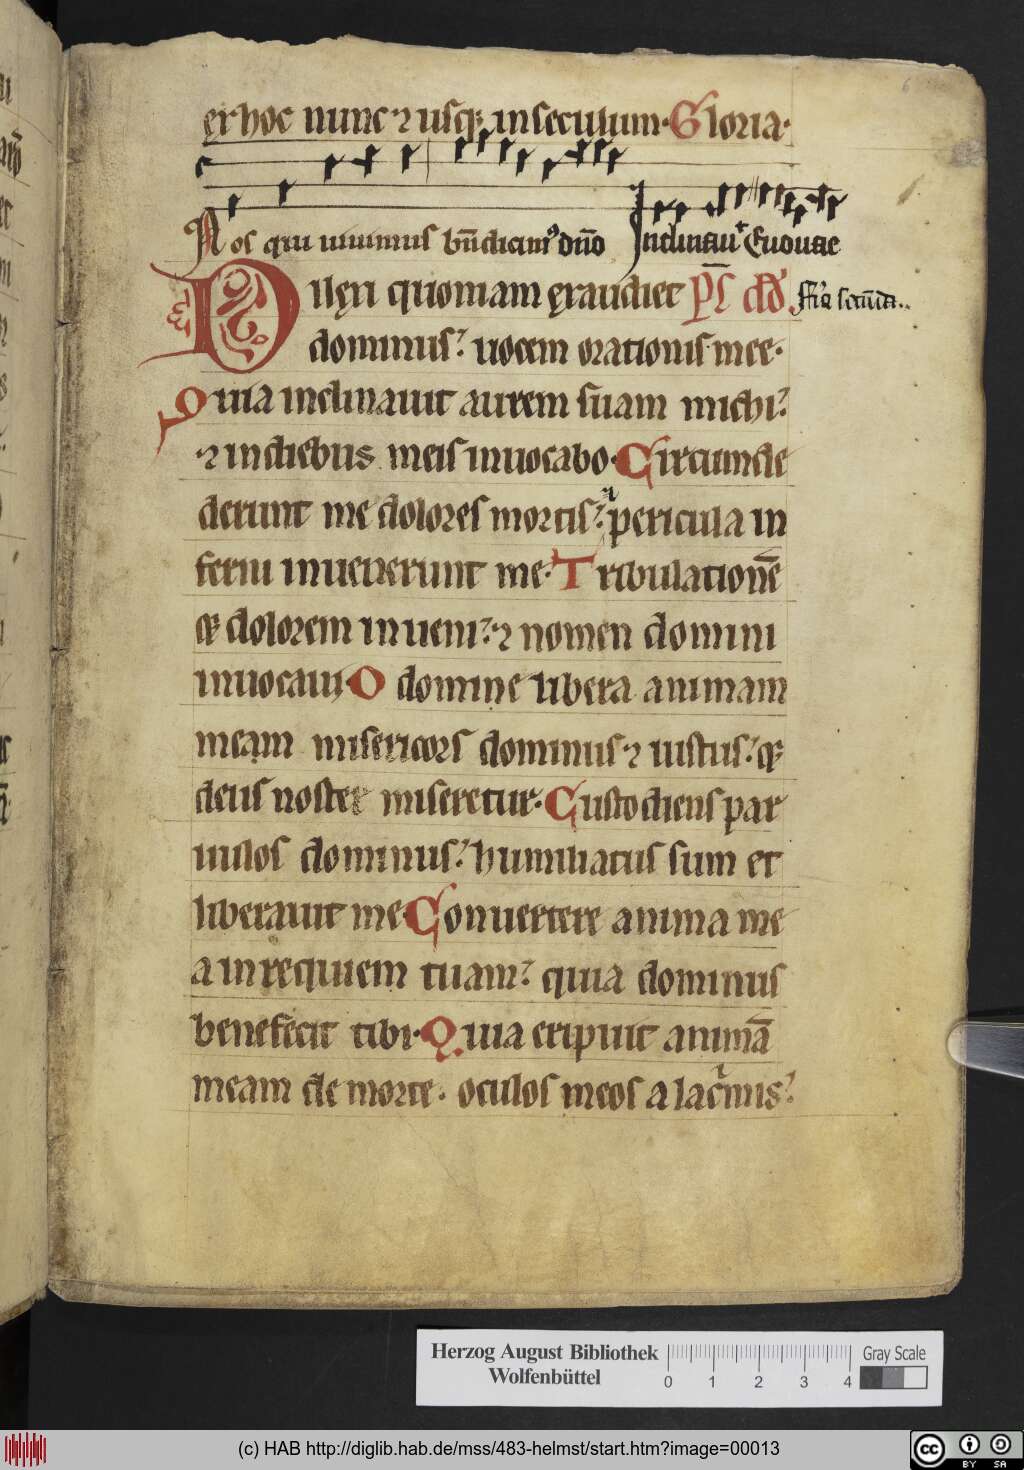 ex hoc nunc ⁊ usq; in seculum. Gloria.
Nos qui uiuimus bn̄dicimꝰ dn̄o Inclinauit Euouae
Dilexi quoniam exaudiet P̄S dd̄ Fīa scda..
dominus: uocem orationis mee.
Quia inclinauit aurem suam michi:
⁊ in diebus meis inuocabo. Circumde
derunt me dolores mortis: pericula in
ferni inuenerunt me. Tribulationē
⁊ dolorem inueni: ⁊ nomen domini
inuocaui. O domine libera animam
meam misericors dominus ⁊ iustus: ⁊
deus noster miseretur. Custodiens par
uulos dominus: humiliatus sum et
liberauit me. Conuertere anima me
a in requiem tuam: quia dominus
benefecit tibi. Quia eripuit animā
meam de morte. oculos meos a lac̓mis:
Herzog August Bibliothek
Wolfenbüttel
0 1 2 3 4
Gray Scale
(c) HAB http://diglib.hab.de/mss/483-helmst/start.htm?image=00013
cc BY SA